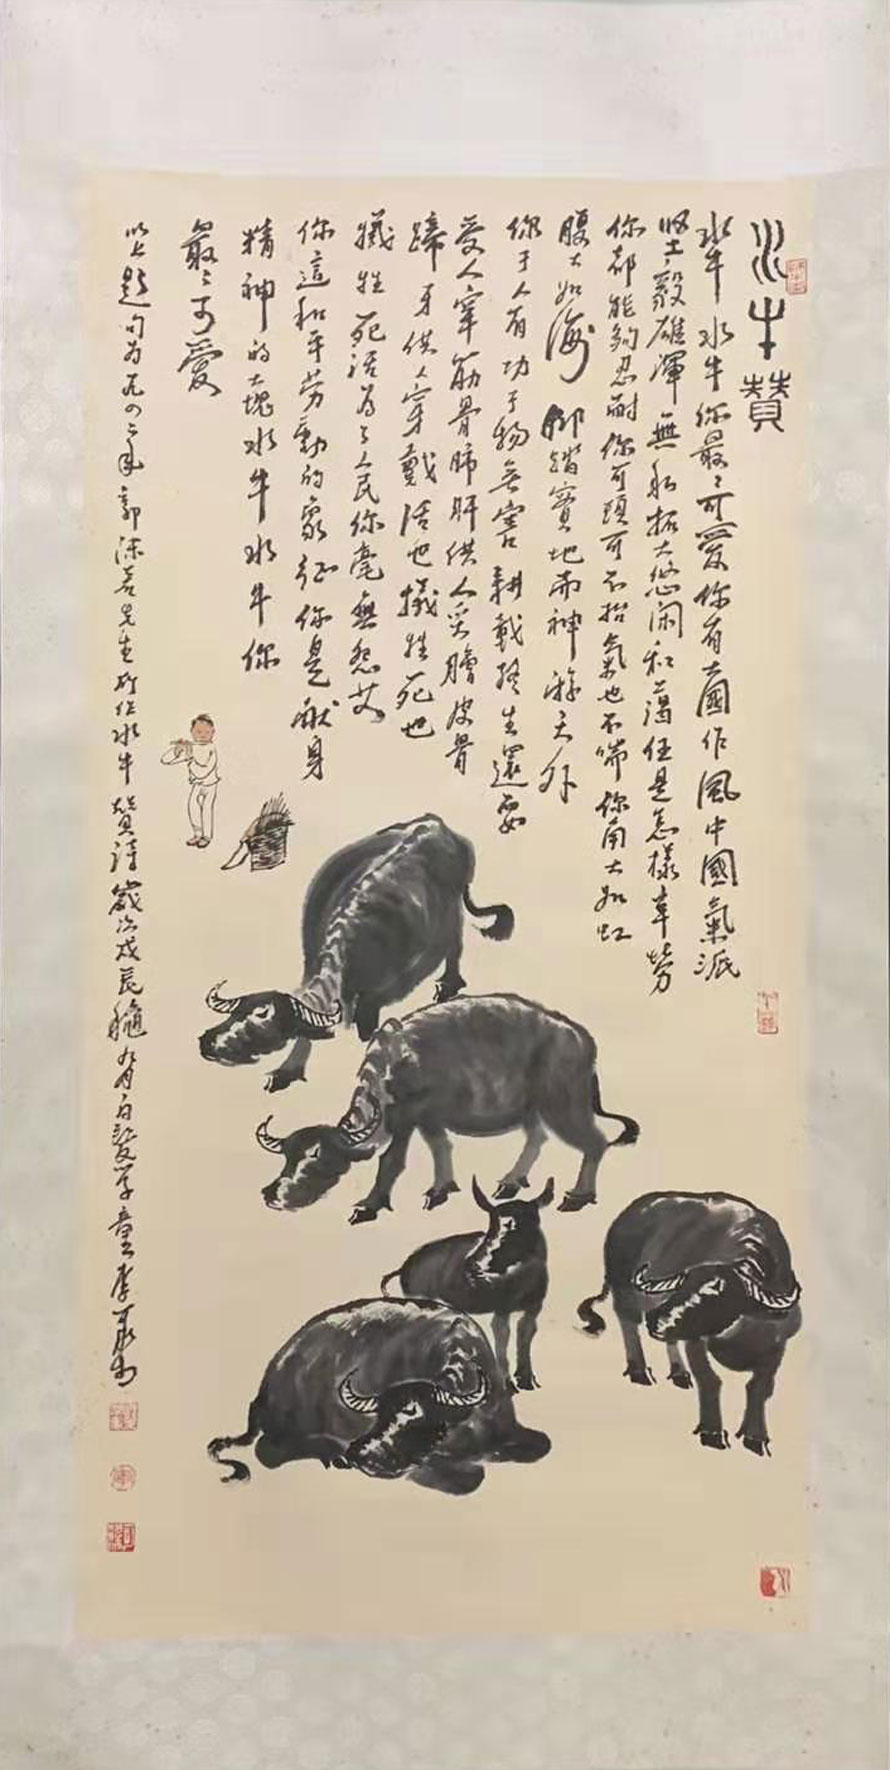 水牛赞
水牛水牛你最々可爱你有大國作風中國氣派
坚毅雄渾無私拓大悠闲和藹任是怎樣辛勞
你都能夠忍耐你可頭可不抬氣也不喘你角大如虹
腹大如海脚踏實地而神游天外
你于人有功于物無害耕載終生還要
受人宰筋骨肺肝供人炙膾皮骨
蹄牙供人穿戴活也犧牲死也
犧牲死活為了人民你毫無怨艾
你這和平勞動的象征你是献身
精神的大塊水牛水牛你
最々可愛
以上题句为一九四二年郭沫若先生所作水牛贊詩歲次戊辰穐九月白髮学童李可染